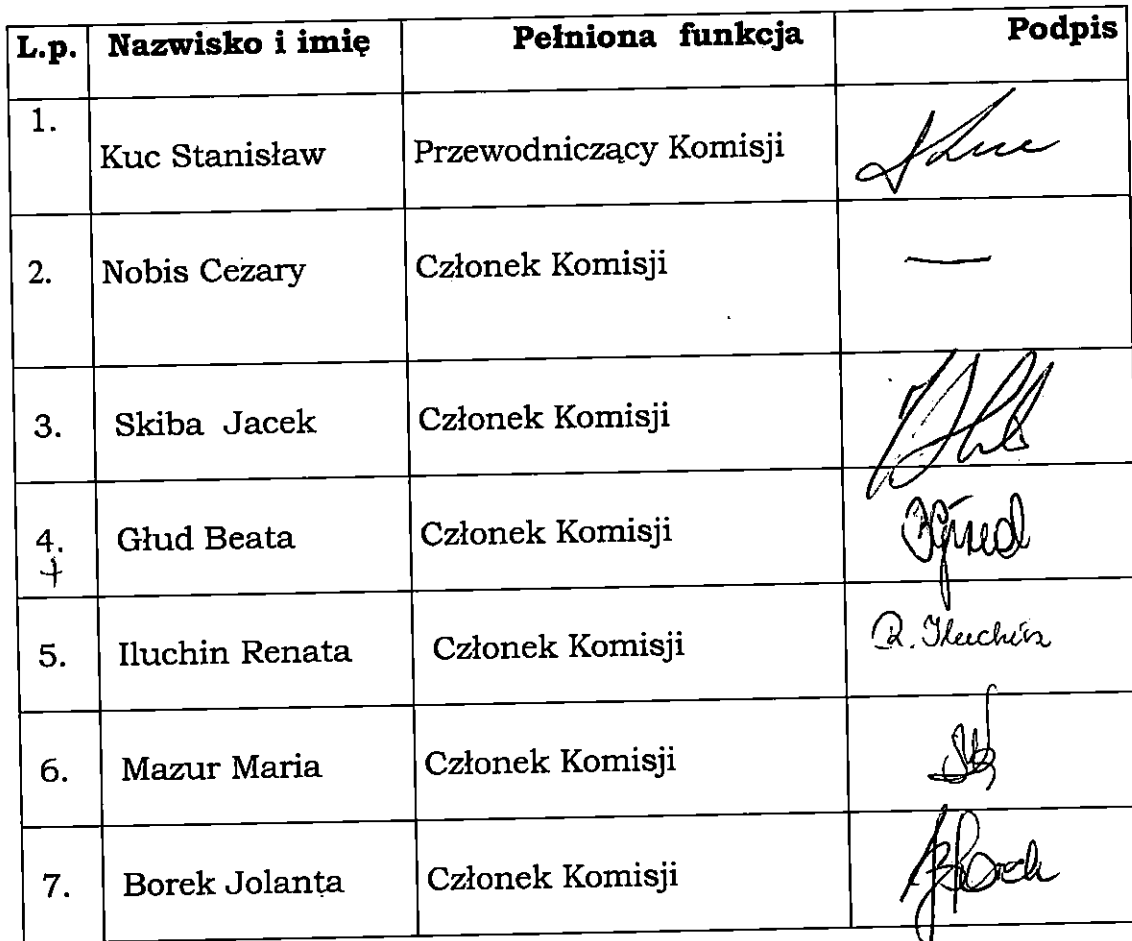 L.p. Nazwisko i imię Pełniona funkcja Podpis
1. Kuc Stanisław Przewodniczący Komisji
2. Nobis Cezary Członek Komisji —
3. Skiba Jacek Członek Komisji
4. Głud Beata Członek Komisji
5. Iluchin Renata Członek Komisji R. Iluchin
6. Mazur Maria Członek Komisji
7. Borek Jolanta Członek Komisji